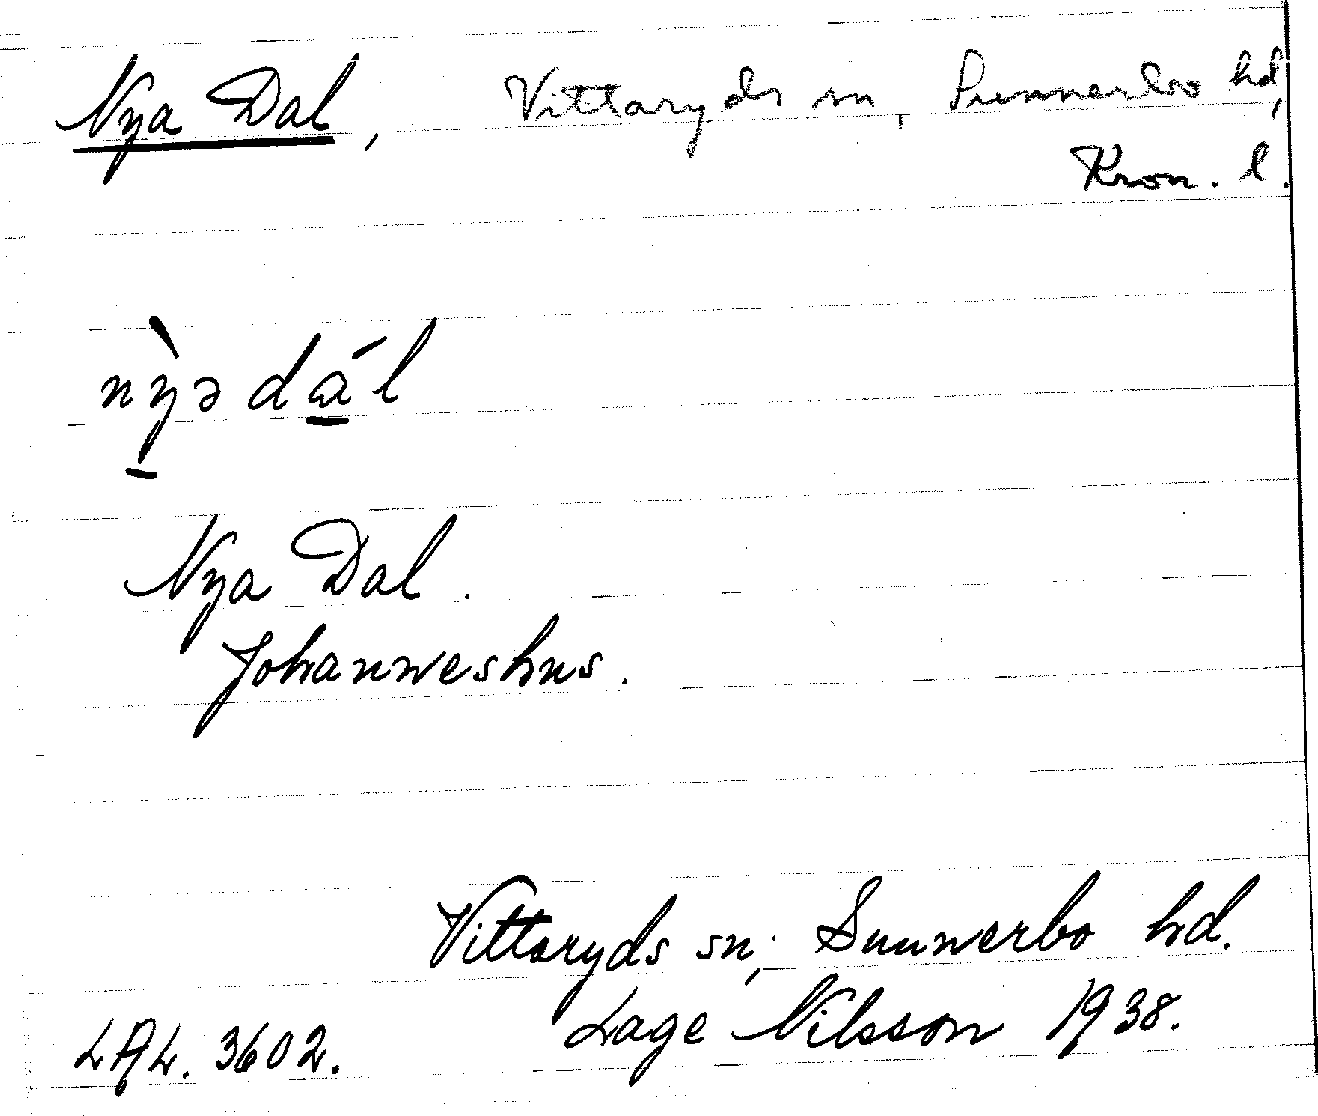 Nya Dal, Vittaryds sn, Sunnerbo hd,
Kron. l.
nỳ̠ə dá̠l
Nya Dal.
Johanneshus.
Vittaryds sn; Sunnerbo hd.
LAL. 3602. Lage Nilsson 1938.